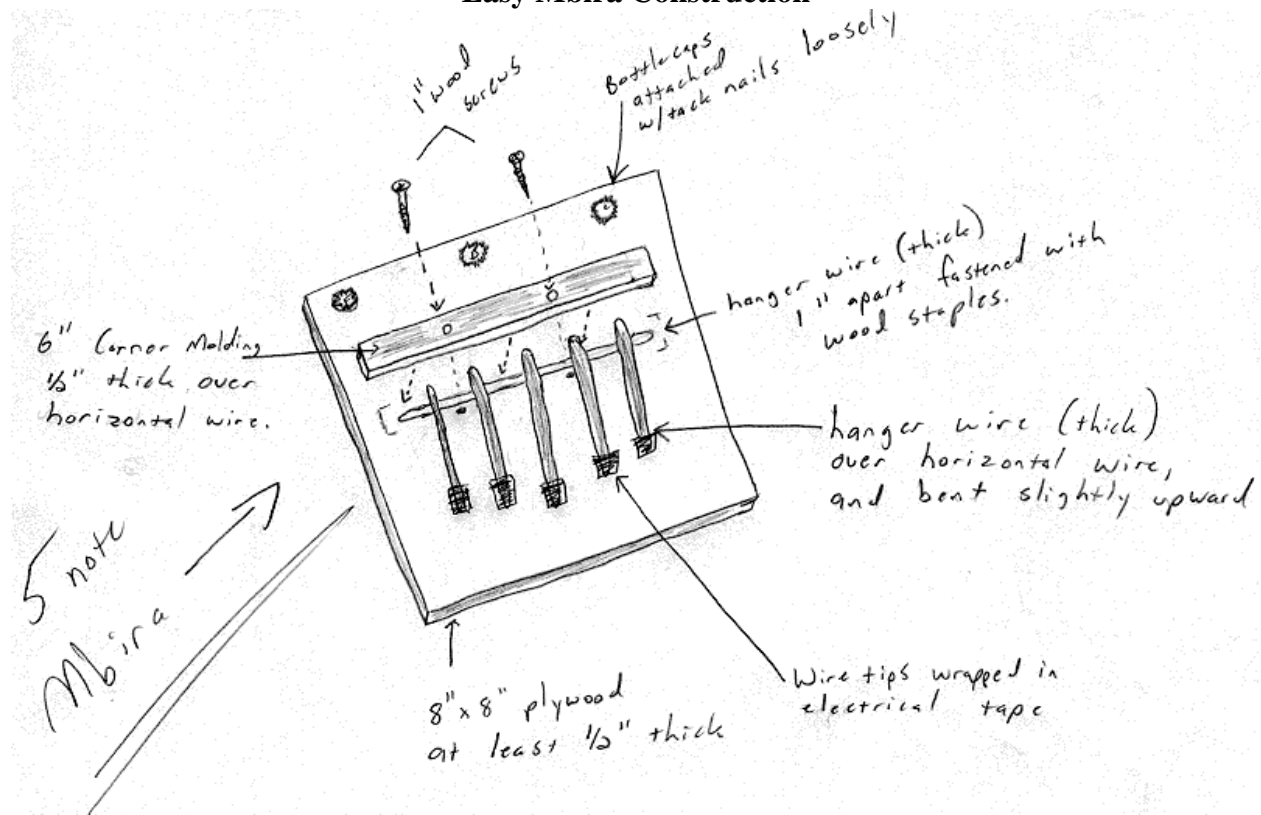 Easy Mbira Construction
1" wood
screws
Bottlecaps
attached
w/tack nails loosely
hanger wire (thick)
1" apart fastened with
wood staples.
6" Corner Molding
1/2" thick over
horizontal wire.
hanger wire (thick)
over horizontal wire,
and bent slightly upward
5 note
Mbira
8" x 8" plywood
at least 1/2" thick
Wire tips wrapped in
electrical tape